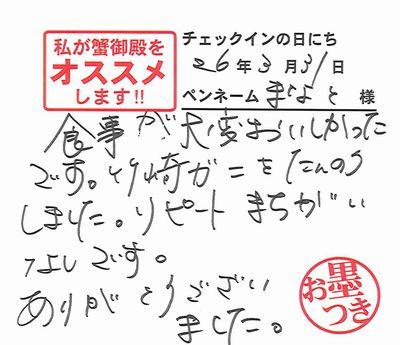 私が蟹御殿を
オススメ
します!!
チェックインの日にち
26年3月31日
ペンネーム まなと 様
食事が大変おいしかった
です。竹崎ガニをたんのう
しました。リピートまちがい
なしです。
ありがとうござい
ました。
お墨
つき